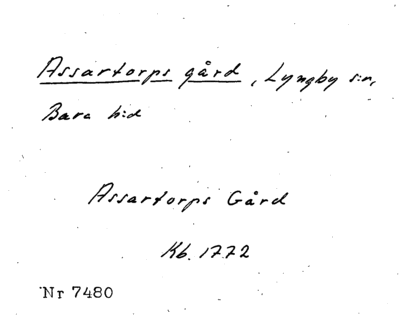 Assartorps gård, Lyngby s:n,
Bara h:d
Assartorps Gård
Kb. 1772
Nr 7480